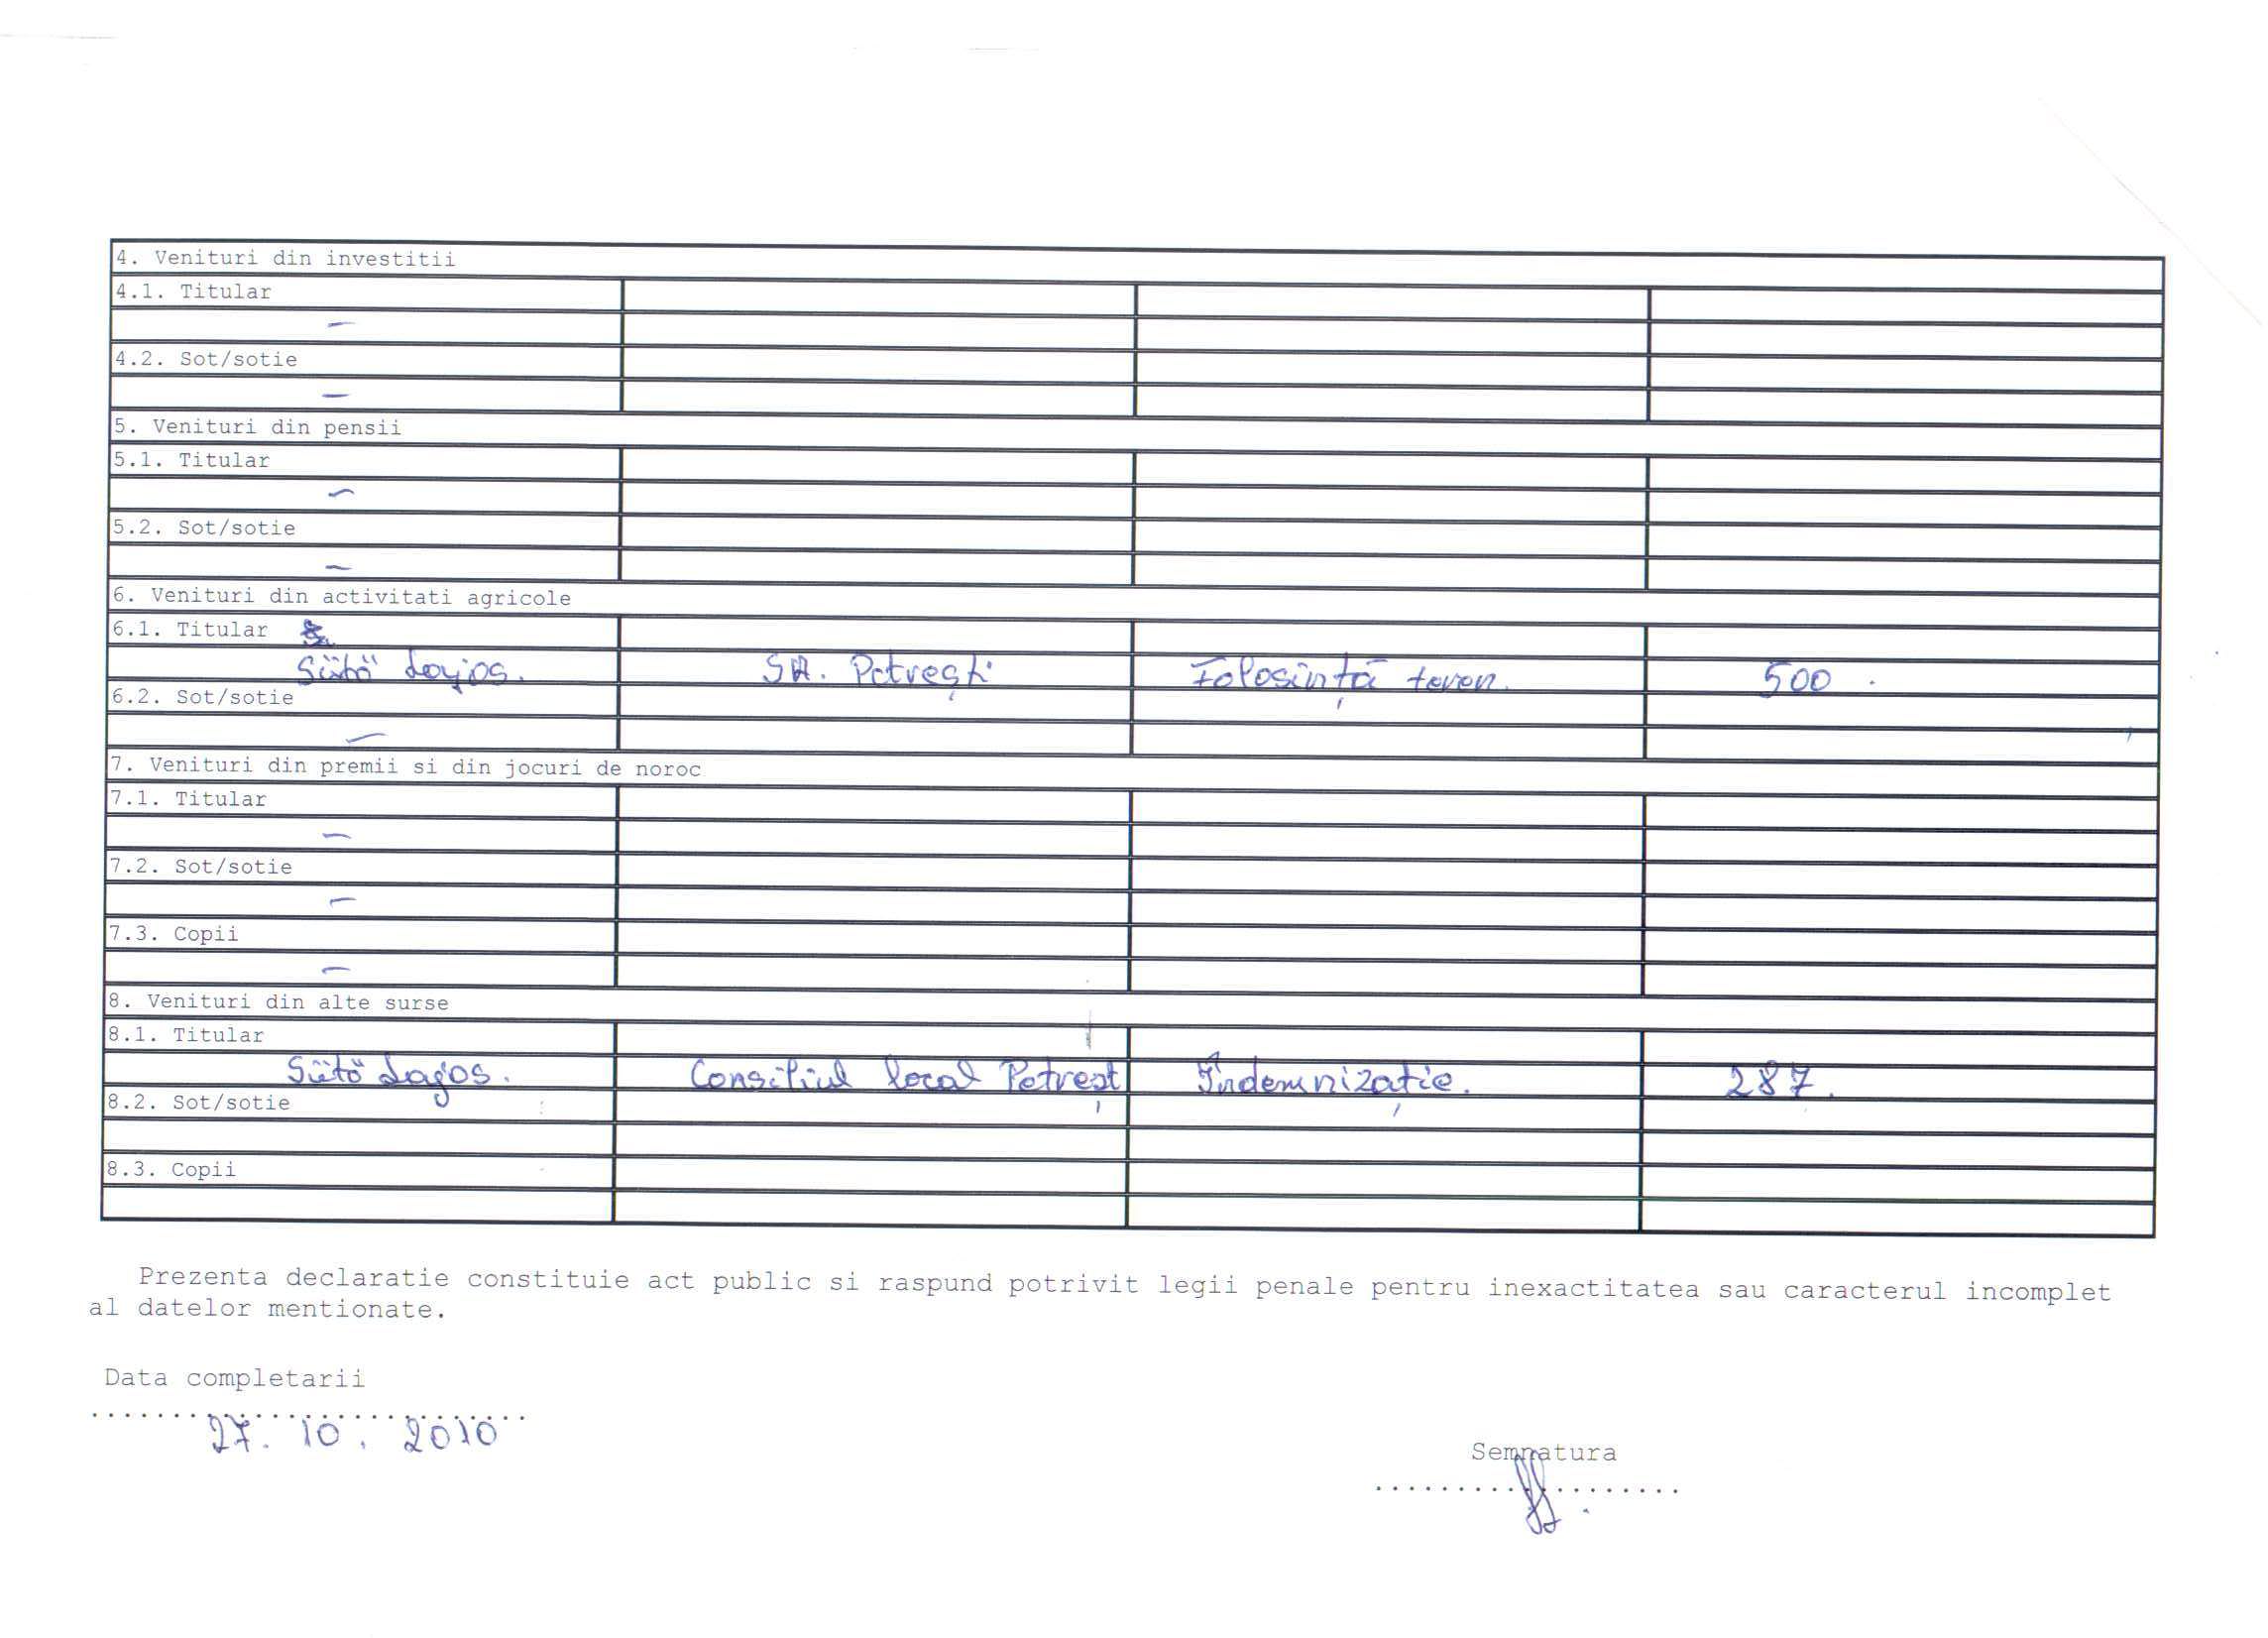 4. Venituri din investitii
4.1. Titular
—
4.2. Sot/sotie
—
5. Venituri din pensii
5.1. Titular
—
5.2. Sot/sotie
—
6. Venituri din activitati agricole
6.1. Titular
Sütö Lajos. SA. Petrești Folosință teren. 500.
6.2. Sot/sotie
—
7. Venituri din premii si din jocuri de noroc
7.1. Titular
—
7.2. Sot/sotie
—
7.3. Copii
—
8. Venituri din alte surse
8.1. Titular
Sütö Lajos. Consiliul local Petrești Îndemnizație. 287.
8.2. Sot/sotie
8.3. Copii
Prezenta declaratie constituie act public si raspund potrivit legii penale pentru inexactitatea sau caracterul incomplet
al datelor mentionate.
Data completarii
27. 10. 2010
Semnatura